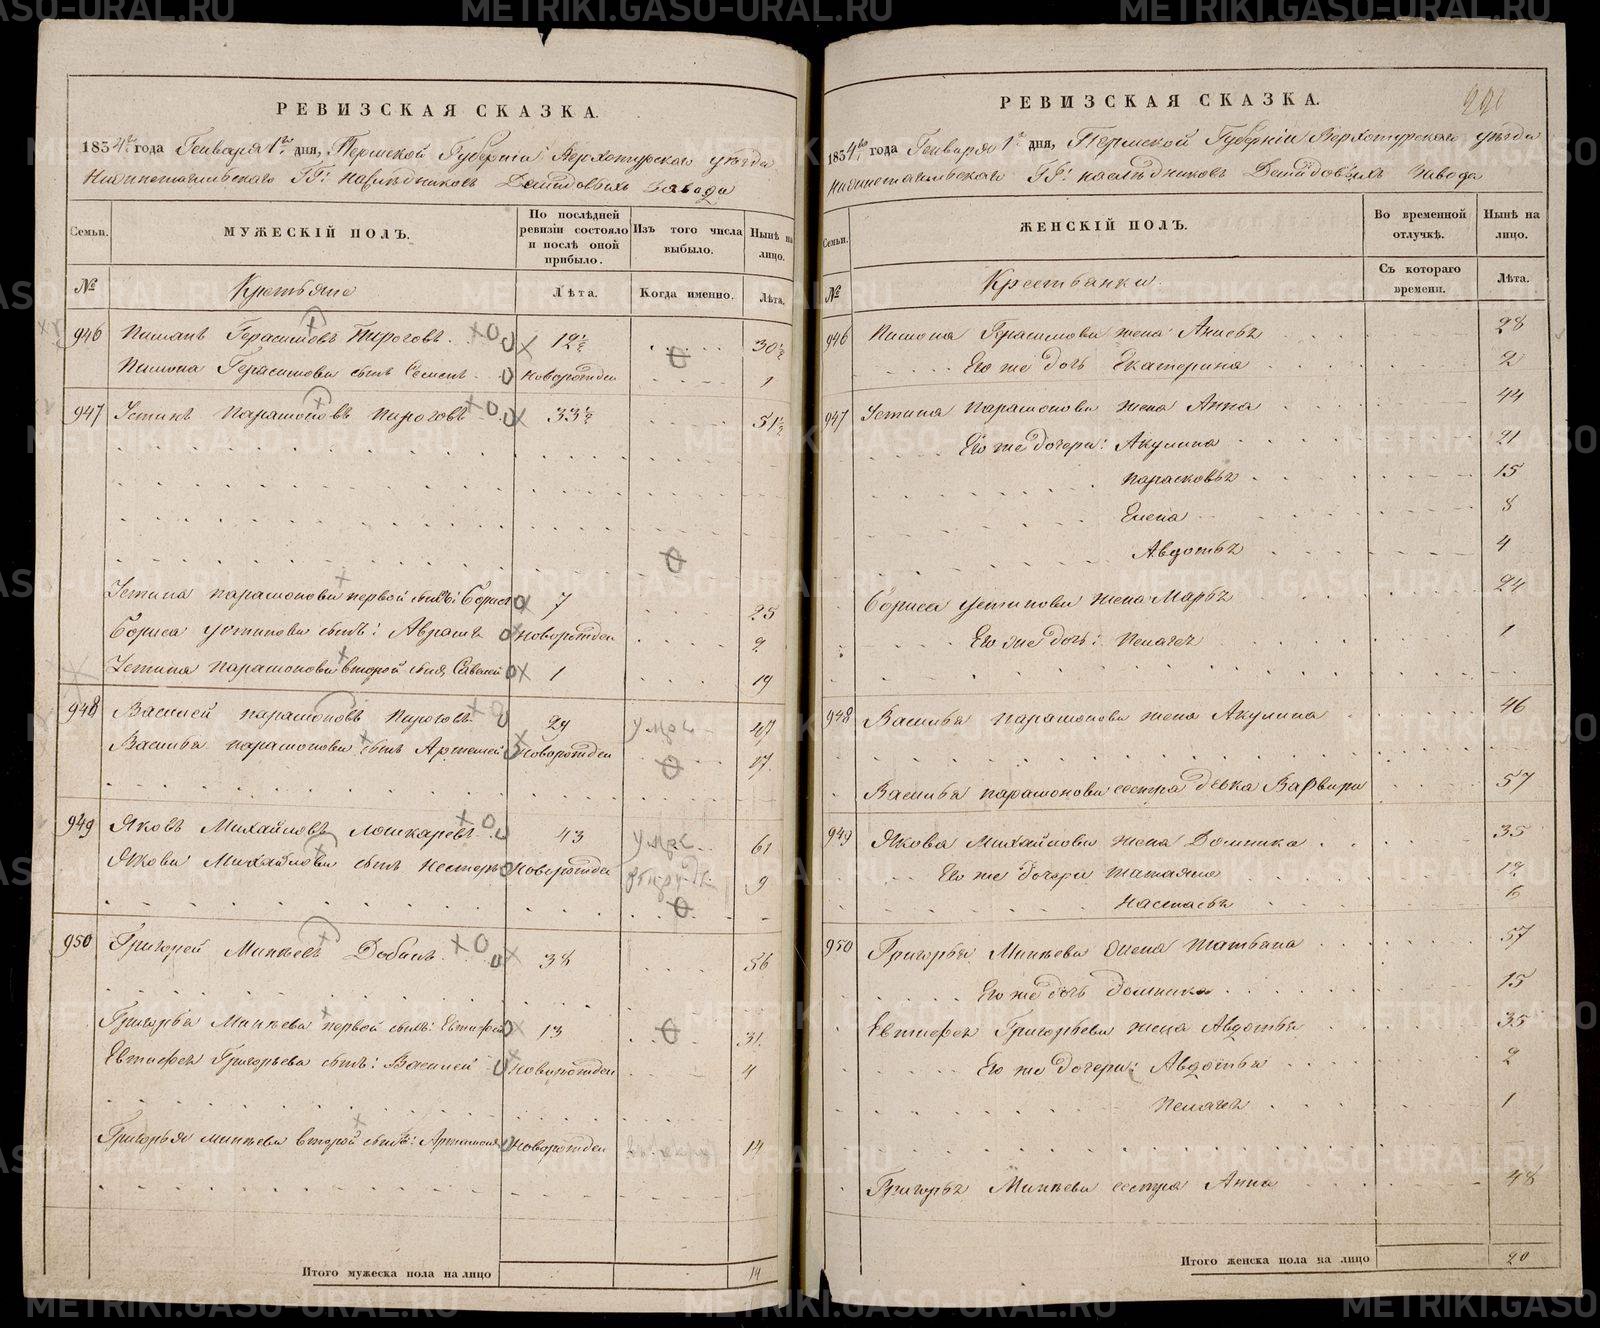 РЕВИЗСКАЯ СКАЗКА.
1834го года Генваря 1го дня, Пермской Губерніи Верхотурского уѣзда
Нижнетагильского ГГ: наслѣдниковъ Демидовыхъ завода
Семьи. МУЖЕСКІЙ ПОЛЪ. По послѣдней ревизіи состояло и послѣ оной прибыло. Изъ того числа выбыло. Нынѣ на лицо.
№ Крестьяне Лѣта. Когда именно. Лѣта.
946 Пимонъ Герасимовъ Пироговъ 12½ 30½
Пимона Герасимова сынъ Семенъ новорожден 1
947 Устинъ Парамоновъ Пироговъ 33½ 51½
Устина Парамонова первой сынъ: Борисъ 7 25
Бориса Устинова сынъ: Аврамъ новорожден 2
Устина Парамонова второй сынъ Савелей 1 19
948 Василей Парамоновъ Пироговъ 29 умре 47
Василья Парамонова сынъ Артемей новорожден 17
949 Яковъ Михайловъ Лошкаревъ 43 умре 61
Якова Михайлова сынъ Нестеръ новорожден 9
950 Григорей Минѣевъ Добынъ 38 56
Григорья Минѣева первой сынъ: Евтифей 13 31
Евтифея Григорьева сынъ: Василей новорожден 4
Григорья Минѣева второй сынъ: Артамонъ новорожден 14
Итого мужеска пола на лицо 14
РЕВИЗСКАЯ СКАЗКА.
1834го года Генваря 1го дня, Пермской Губерніи Верхотурского уѣзда
Нижнетагильского ГГ: наслѣдниковъ Демидовыхъ завода
Семьи. ЖЕНСКІЙ ПОЛЪ. Во временной отлучкѣ. Нынѣ на лицо.
№ Крестьянки Съ котораго времени. Лѣта.
946 Пимона Герасимова жена 28
Его же дочь Екатерина 2
947 Устина Парамонова жена Анна 44
Его же дочери: Акулина 21
Парасковья 15
Елена 8
Авдотья 4
Бориса Устинова жена Марья 24
Его же дочь: Пелагея 1
948 Василья Парамонова жена Акулина 46
Василья Парамонова сестра девка Варвара 57
949 Якова Михайлова жена Домника 35
Его же дочери Татьяна 12
Настасья 6
950 Григорья Минѣева жена Татьяна 57
Его же дочь Домника 15
Евтифея Григорьева жена Авдотья 35
Его же дочери: Авдотья 2
Пелагея 1
Григорья Минѣева сестра Анна 48
Итого женска пола на лицо 20
METRIKI.GASO-URAL.RU